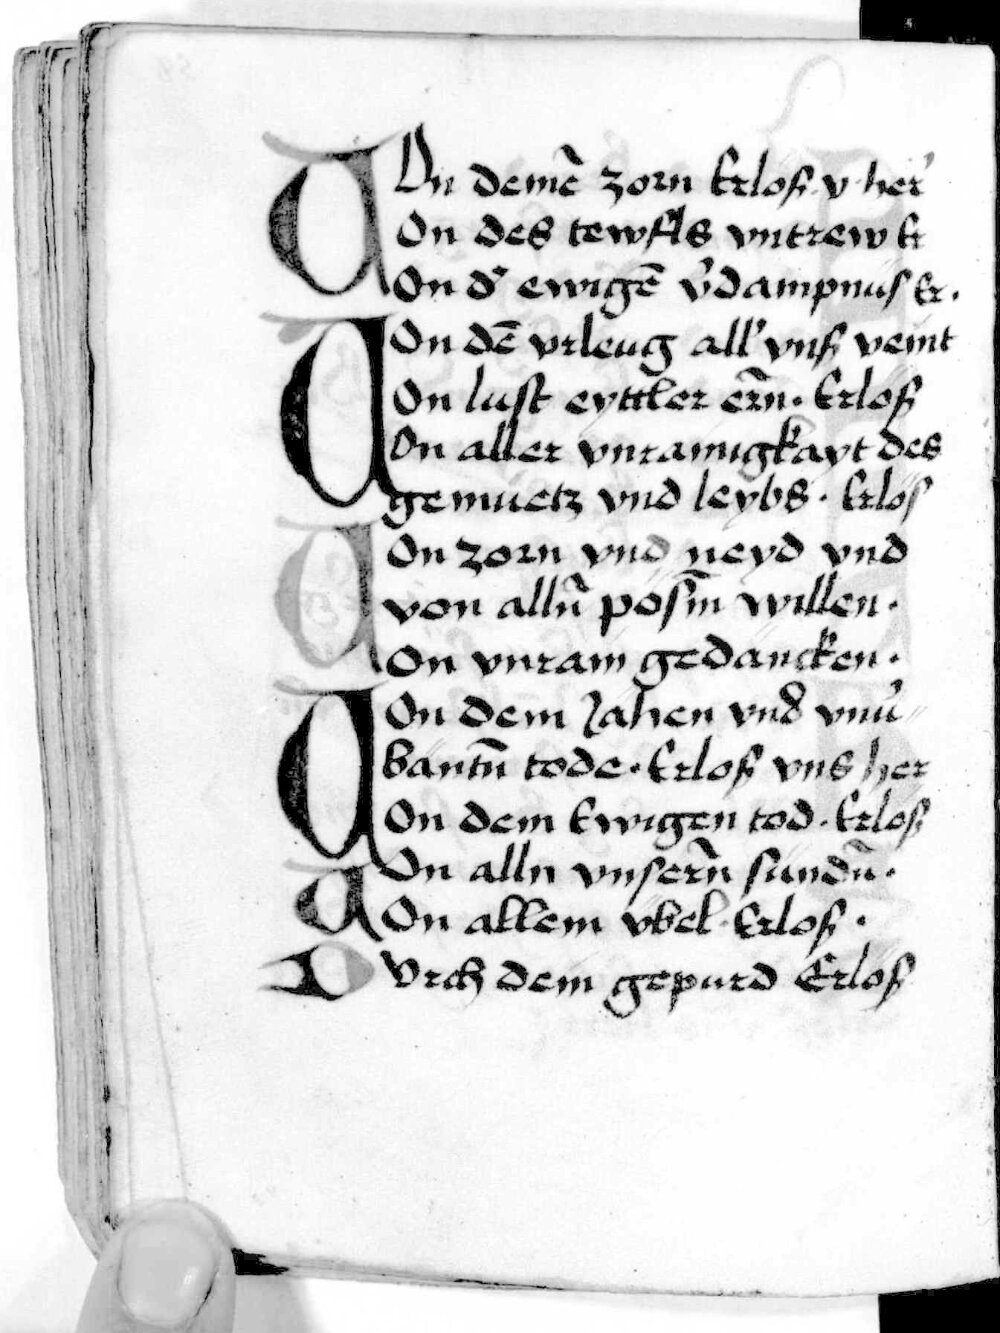 On demē zorn Erlos v her
On des tewfls vntrew Er
On d' ewigē v'dampnus Er.
On dē vrleug all' vns veint
On lust eyttler ern̄. Erlos
On aller vnrainigkayt des
gemuetz vnd leybs. Erlos
On zorn vnd neyd vnd
von alln̄ posm̄ willen.
On vnrain gedancken.
On dem Jahen vnd vnu'
bantn̄ tode. Erlos vns her
On dem Ewigen tod. Erlos
On alln vnsern̄ sundn̄.
On allem vbel. Erlos.
DVrch dem gepurd Erlos